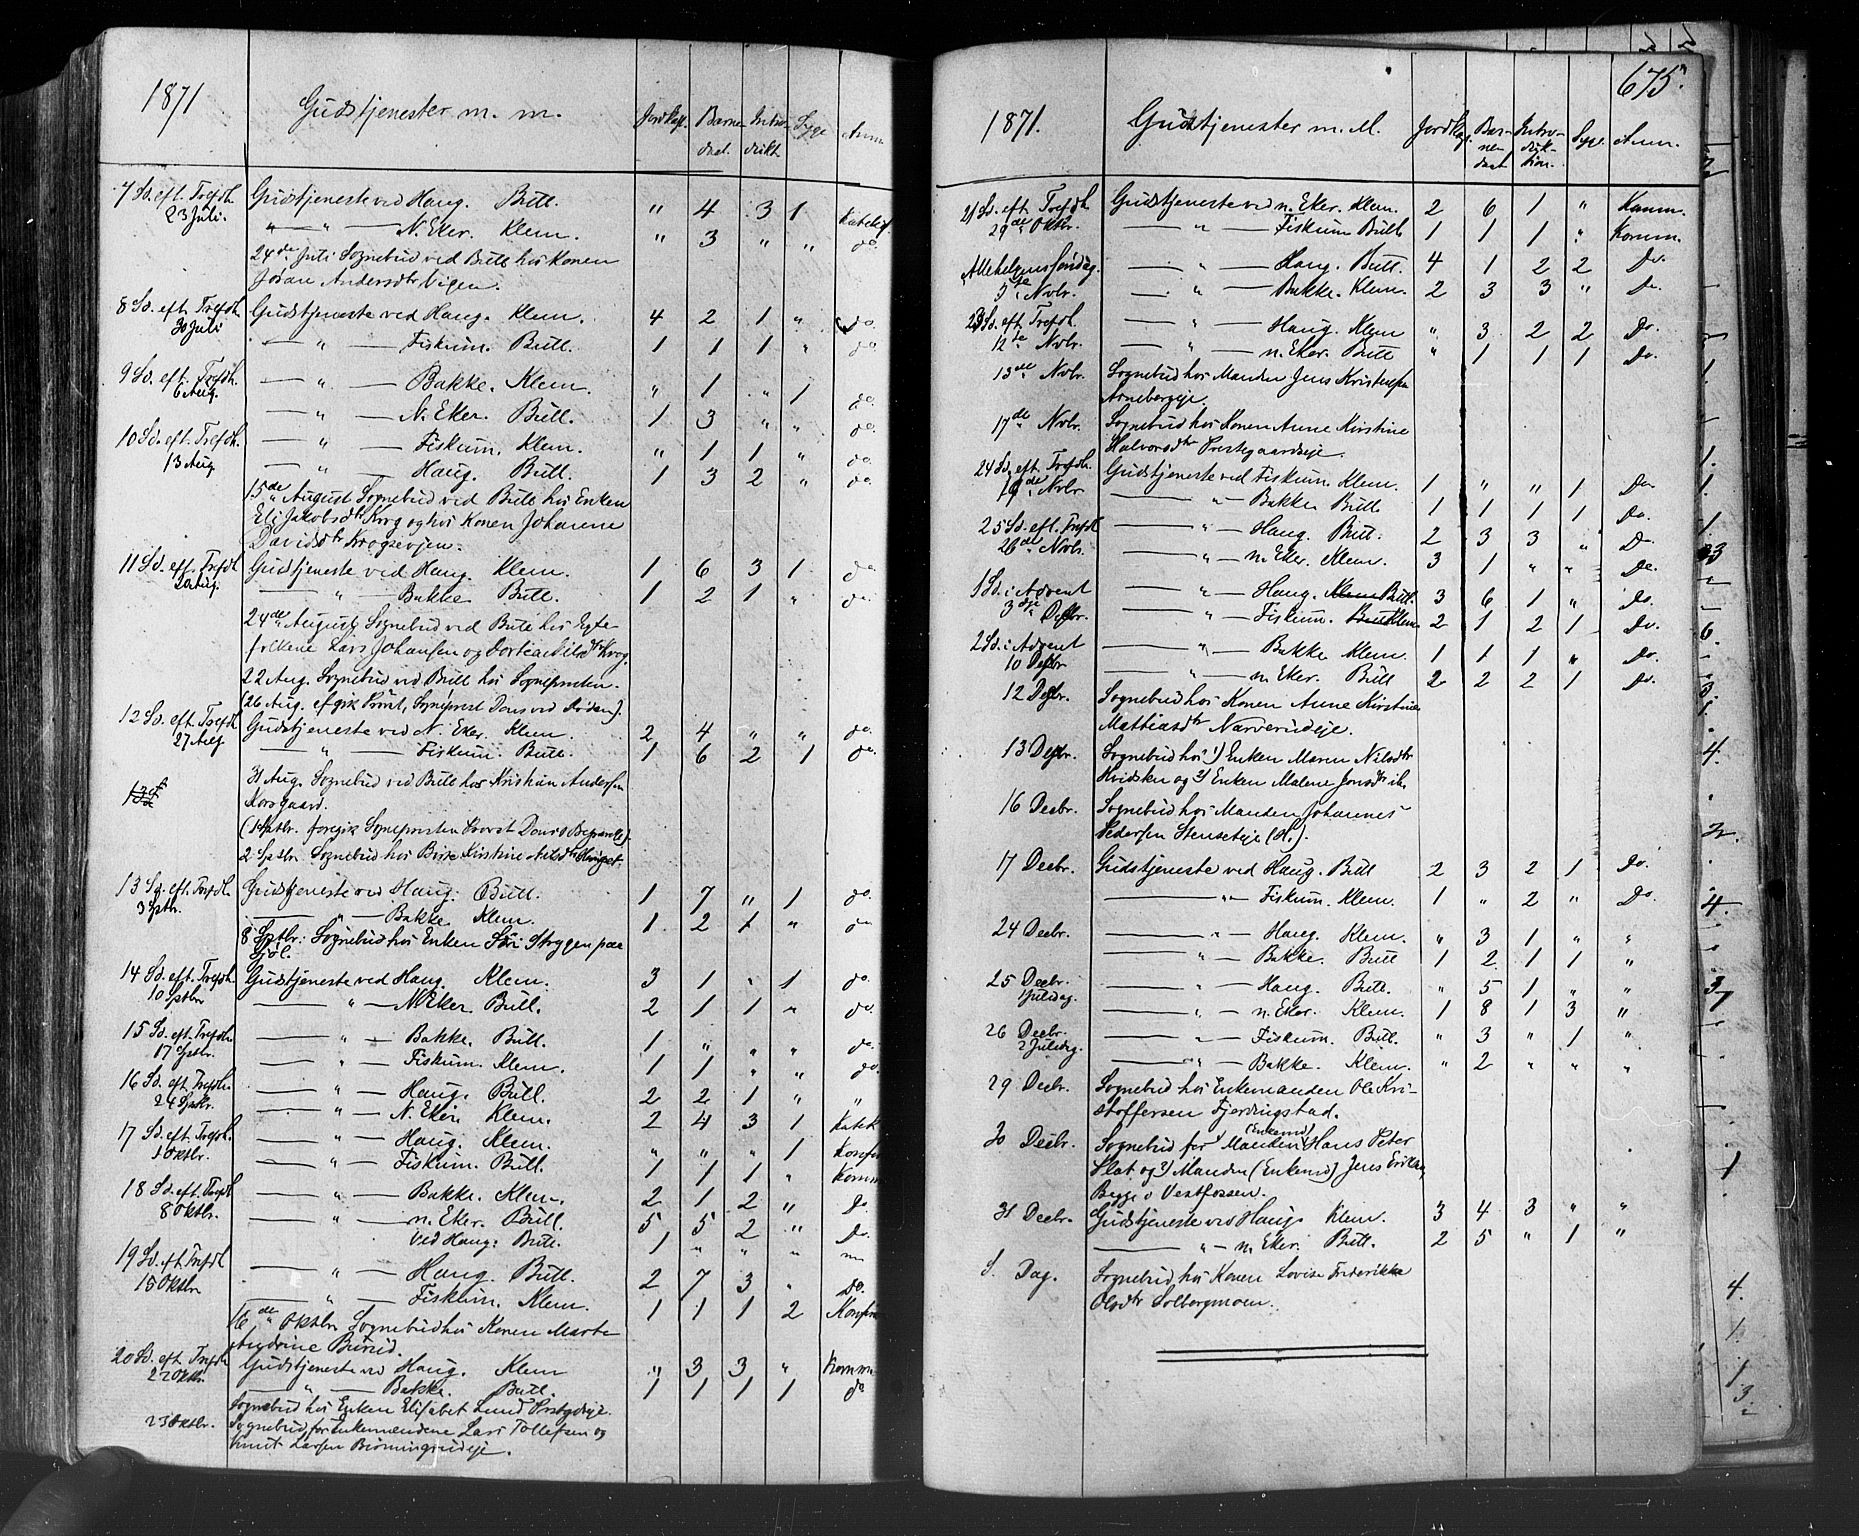 1871
Gudstjenester m. m.
Jordkast. Barne Intro Syge Anm
daab. dukt
7 Sd. eft. Trefdh. Gudstjeneste ved Haug. Bull. " 4 3 1
23 Juli. " — " — N. Eker. Klem. " 3 " " do.
24de Juli Sognebud ved Bull hos Konen
Andersdtr Vigen.
8 Sd. eft. Trefdh. Gudstjeneste ved Haug. Klem. 4 2 1 " do.
30 Juli — " — Fiskum. Bull. 1 1 1 " do.
9 Sd. eft. Trefdh. — " — Bakke. Klem. " 1 " 1 do.
6 Aug. — " — N. Eker. Bull. 1 3 " " do.
10 Sd. eft. Trefdh. — " — Fiskum. Klem. " 1 1 " do.
13 Aug — " — Haug. Bull. 1 3 2 " do.
15de August Sognebud ved Bull hos Enken
Eli Jakobsdtr Krog og hos Konen Johanne
Davidsdtr
11 Sd. eft. Trefdh Gudstjeneste ved Haug. Klem. 1 6 3 1 do
20 Aug. — " — Bakke Bull. 1 2 1 " do.
24de August Sognebud ved Bull hos Egte
folkene Lars Johansen og Krog.
22 Aug. Sognebud ved Bull hos Sognepresten.
(26 Aug. afgik Provst, Sogneprest Dons ved Døden).
12 Sd. eft. Trefdh Gudstjeneste ved N. Eker. Klem. 2 4 " " do.
27 Aug. — " — Fiskum. Bull. 1 6 2 1 do.
31 Aug. Sognebud ved Bull hos Kristian Andersen
Korsgaard.
(1 Sptbr. foregik Sognepresten Provst Dons's Begravelse).
2 Sptbr. Sognebud hos Kirstine Nilsdtr
13 Sd. eft. Trefdh. Gudstjeneste ved Haug. Bull. 1 7 " 1 do.
3 Sptbr. — " — Bakke Klem. 1 2 1 " do
8 Sptbr. Sognebud hos Enken Siri Stryggen paa
14 Sd. eft. Trefdh Gudstjeneste ved Haug. Klem. 3 1 " 1 do.
10 Sptbr — " — N. Eker. Bull. 2 1 1 " do.
15 Sd. eft. Trefdh. — " — Bakke. Bull. 1 " " " do.
17 Sptbr. — " — Fiskum. Klem. 1 1 " " do.
16 Sd. eft. Trefdh. — " — Haug. Bull. 2 2 1 " "
24 Sptbr. — " — N. Eker. Klem. 2 4 3 1 Katek
17 Sd. eft. Trefdh. — " — Haug. Klem. " " " 1
1 Oktbr. — " — Fiskum. Bull. 1 1 1 " Komm
18 Sd. eft. Trefdh — " — Bakke. Klem. 2 1 2 " Do
8 Oktbr. — " — n. Eker. Bull. 5 5 2 " Do.
Ved Haug. Bull. 1 " " "
19 Sd. eft Trefdh — " — Haug. Bull. 2 7 3 " Do.
15 Oktbr — " — Fiskum. Klem. 1 1 1 2
16de Oktbr. Sognebud hos Konen Marte
Andrine Bursud.
20 Sd. eft. Trefdh Gudstjeneste ved Haug. Klem " 3 3 " Komm
22 Oktbr. — " — Bakke. Bull. 1 1 1 1 do
Sognebud hos Enken Elisabet Lund
23 Oktbr. Sognebud for Enkemændene Lars Tollefsen og
Knut Larsen
675.
1871. Gudstjenester m. M. Jordkg. Bar- Intro- Syge. Anm.
ne- duk-
daab tion.
21 Sd. eft. Trefdh Gudstjeneste ved n. Eker. Klem. 2 6 1 " Komm.
29de Oktbr. — " — Fiskum Bull 1 1 1 " Komm.
Allehelgens Søndag. — " — Haug. Bull. 4 1 2 2 Do.
5te Nvbr. — " — Bakke. Klem. 2 3 3 " Do.
23 Sd. eft. Trefdh. — " — Haug. Klem " 3 2 2 Do.
12te Nvbr. — " — n. Eker. Bull " 1 1 1 Do.
13de Nvbr. Sognebud hos Manden Jens Kristensen
Arnebergeje.
17de Nvbr. Sognebud hos Konen Anne Kirstine
Halvorsdtr Prestgaardseje.
24 Sd. eft. Trefdh. Gudstjeneste ved Fiskum. Klem. 1 " " 1 Do.
19de Nvbr — " — Bakke Bull 1 1 1 1 Do.
25 Sd. eft. Trefdh — " — Haug. Bull. 2 3 3 " D
26de Nvbr. — " — n. Eker. Klem. 3 1 " " Do.
1 Sd. i Advent — " — Haug. Klem Bull. 3 6 1 " Do.
3dje Decbr. — " — Fiskum. Bull Klem 2 1 2 1 Do.
2 Sd. i Advent — " — Bakke Klem. 1 1 1 " Do.
10 Decbr — " — n. Eker. Bull 2 2 2 1 Do.
12 Decbr. Sognebud hos Konen Anne Kirstine
Mattiasdtr Narverudeje.
13 Decbr. Sognebud hos 1) Enken Maren Nilsdtr
Hvidsten og 2) Enken Malene Jonsdtr ib.
16 Decbr. Sognebud hos Manden Johannes
Pedersen Stenseteje (St).
17 Decbr. Gudstjeneste ved Haug. Bull 2 3 2 1 Do.
— " — Fiskum. Klem. 1 " 2 " Do.
24 Decbr. — " — Haug. Klem. " 3 1 " "
— " — Bakke. Bull 1 2 1 1 "
25 Decbr. — " — Haug. Bull. " 5 1 " "
1 Juledag. — " — n. Eker. Klem. 1 8 1 3 "
26 Decbr. — " — Fiskum. Bull. " 3 " 1 "
2 Juledag. — " — Bakke. Klem. " 2 " " "
29 Decbr. Sognebud hos Enkemanden Ole Kri-
stoffersen Fjerdingstad.
30 Decbr. Sognebud for Manden (Enkemd) Hans Peter
Slat. og 2) Manden (Enkemd) Jens Eriksen
Bygge i Vestfossen.
31 Decbr. Gudstjeneste ved Haug. Klem. 3 4 3 " "
— " — n. Eker. Bull. 2 5 " 1 "
S. Dag. Sognebud hos Konen Lovise Frederikke
Olsdtr Solbergmoen.